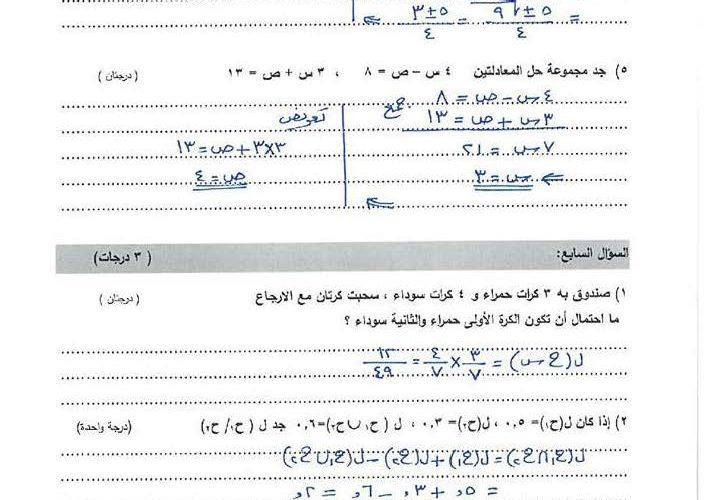 = ٥ ± ٩√ / ٤ = ٥ ± ٣ / ٤
٥) جد مجموعة حل المعادلتين ٤ س – ص = ٨ ، ٣ س + ص = ١٣ ( درجتان )
٤س – ص = ٨
٣س + ص = ١٣ جمع تعويض
٧س = ٢١ ٣×٣ + ص = ١٣
س = ٣ ص = ٤
السؤال السابع: ( ٣ درجات)
١) صندوق به ٣ كرات حمراء و ٤ كرات سوداء ، سحبت كرتان مع الارجاع ( درجتان )
ما احتمال أن تكون الكرة الأولى حمراء والثانية سوداء ؟
ل(ح س) = ٣/٧ × ٤/٧ = ١٢/٤٩
٢) إذا كان ل(ح١)= ٠,٥ ، ل(ح٢)= ٠,٣ ، ل ( ح١ ∪ ح٢)=٠,٦ جد ل ( ح١/ ح٢) (درجة واحدة)
ل(ح١∩ح٢) = ل(ح١) + ل(ح٢) – ل(ح١∪ح٢)
= ٥, + ٣, – ٦, = ٢,